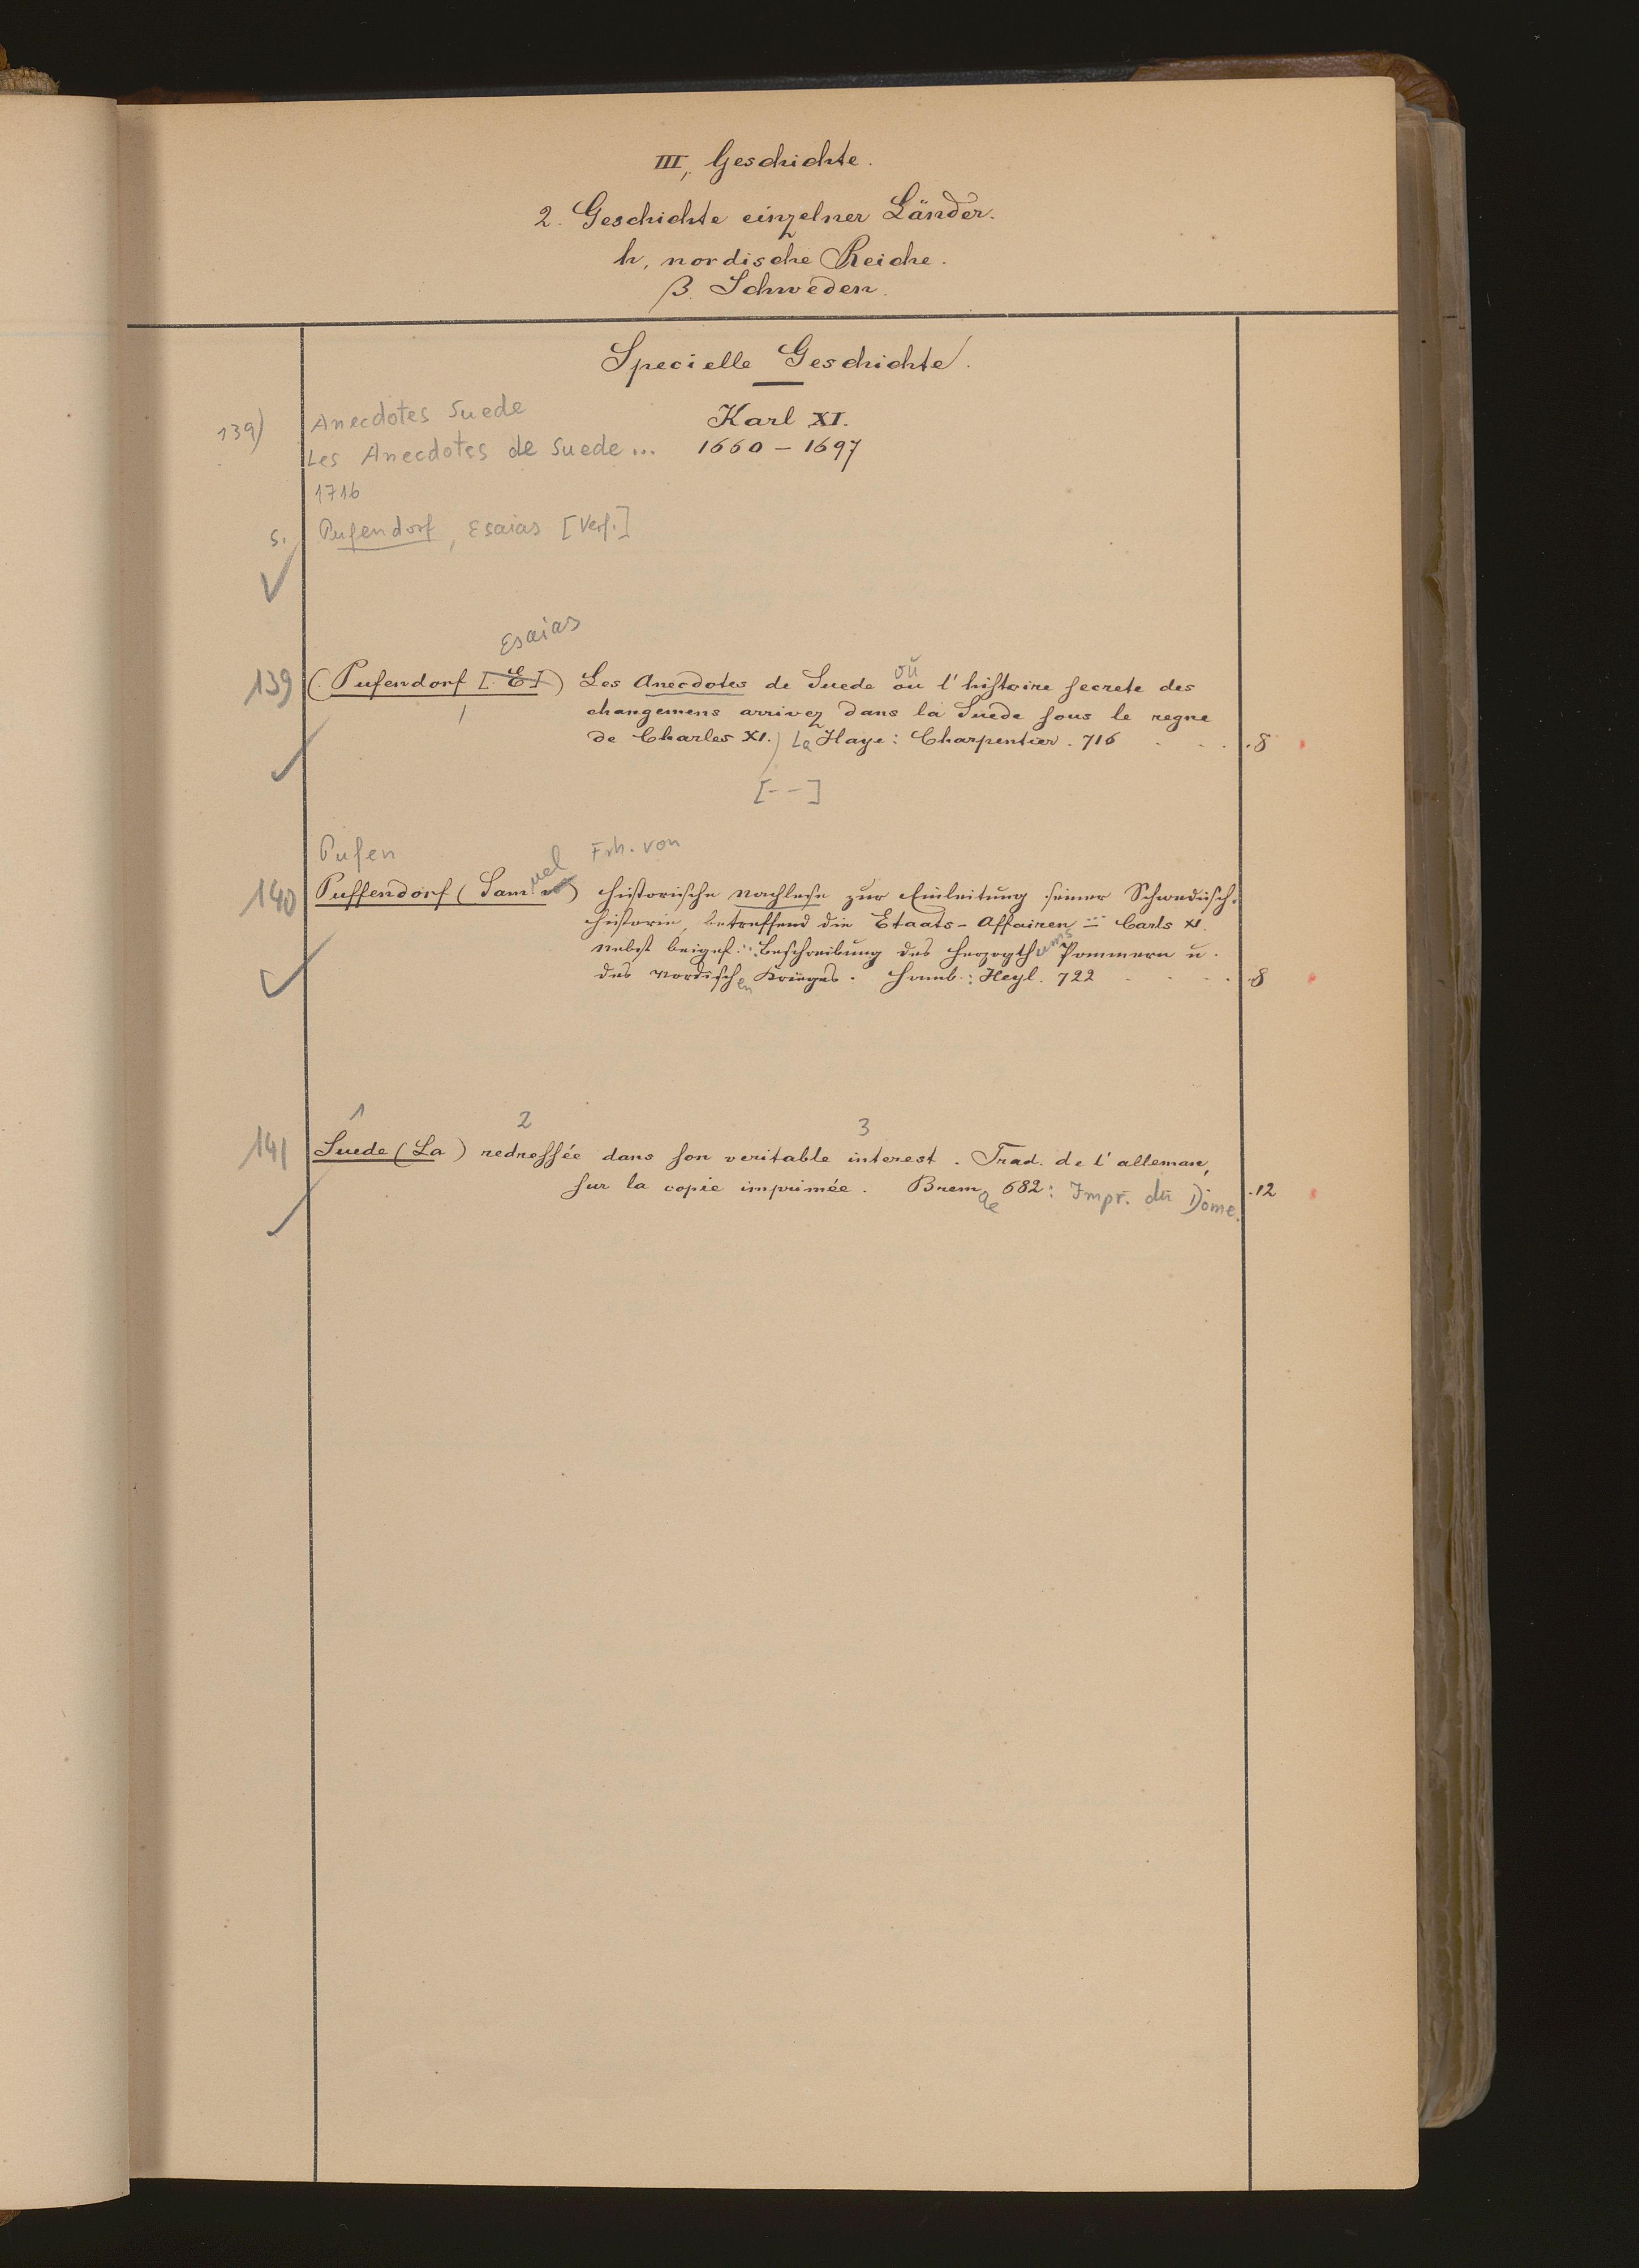 III, Geschichte.
2. Geschichte einzelner Länder.
h, nordische Reiche.
β. Schweden.
Specielle Geschichte.
Karl XI.
1660 – 1697
139) Anecdotes Suede
Les Anecdotes de Suede ...
1716
s. Pufendorf, Esaias [Verf.]
Esaias
139 (Pufendorf [E]) Les Anecdotes de Suede ou l'histoire secrete des
changemens arrivez dans la Suede sous le regne
de Charles XI.) La Haye: Charpentier. 716 . . . . 8
[- -]
Pufen Frh. von
140 Puffendorf (Samuel v) historische Nachlese zur Einleitung seiner Schwedisch.
Historie, betreffend die Etaats-Affairen = Carls XI.
nebst beigef. Beschreibung des Herzogthums Pommern u.
des Nordischen Krieges. Hamb.: Heyl. 722 . . . . 8
1 2 3
141 Suede (La) redressée dans son veritable interest. Trad. de l'alleman,
sur la copie imprimée. Bremae 682: Impr. du Dôme. .12